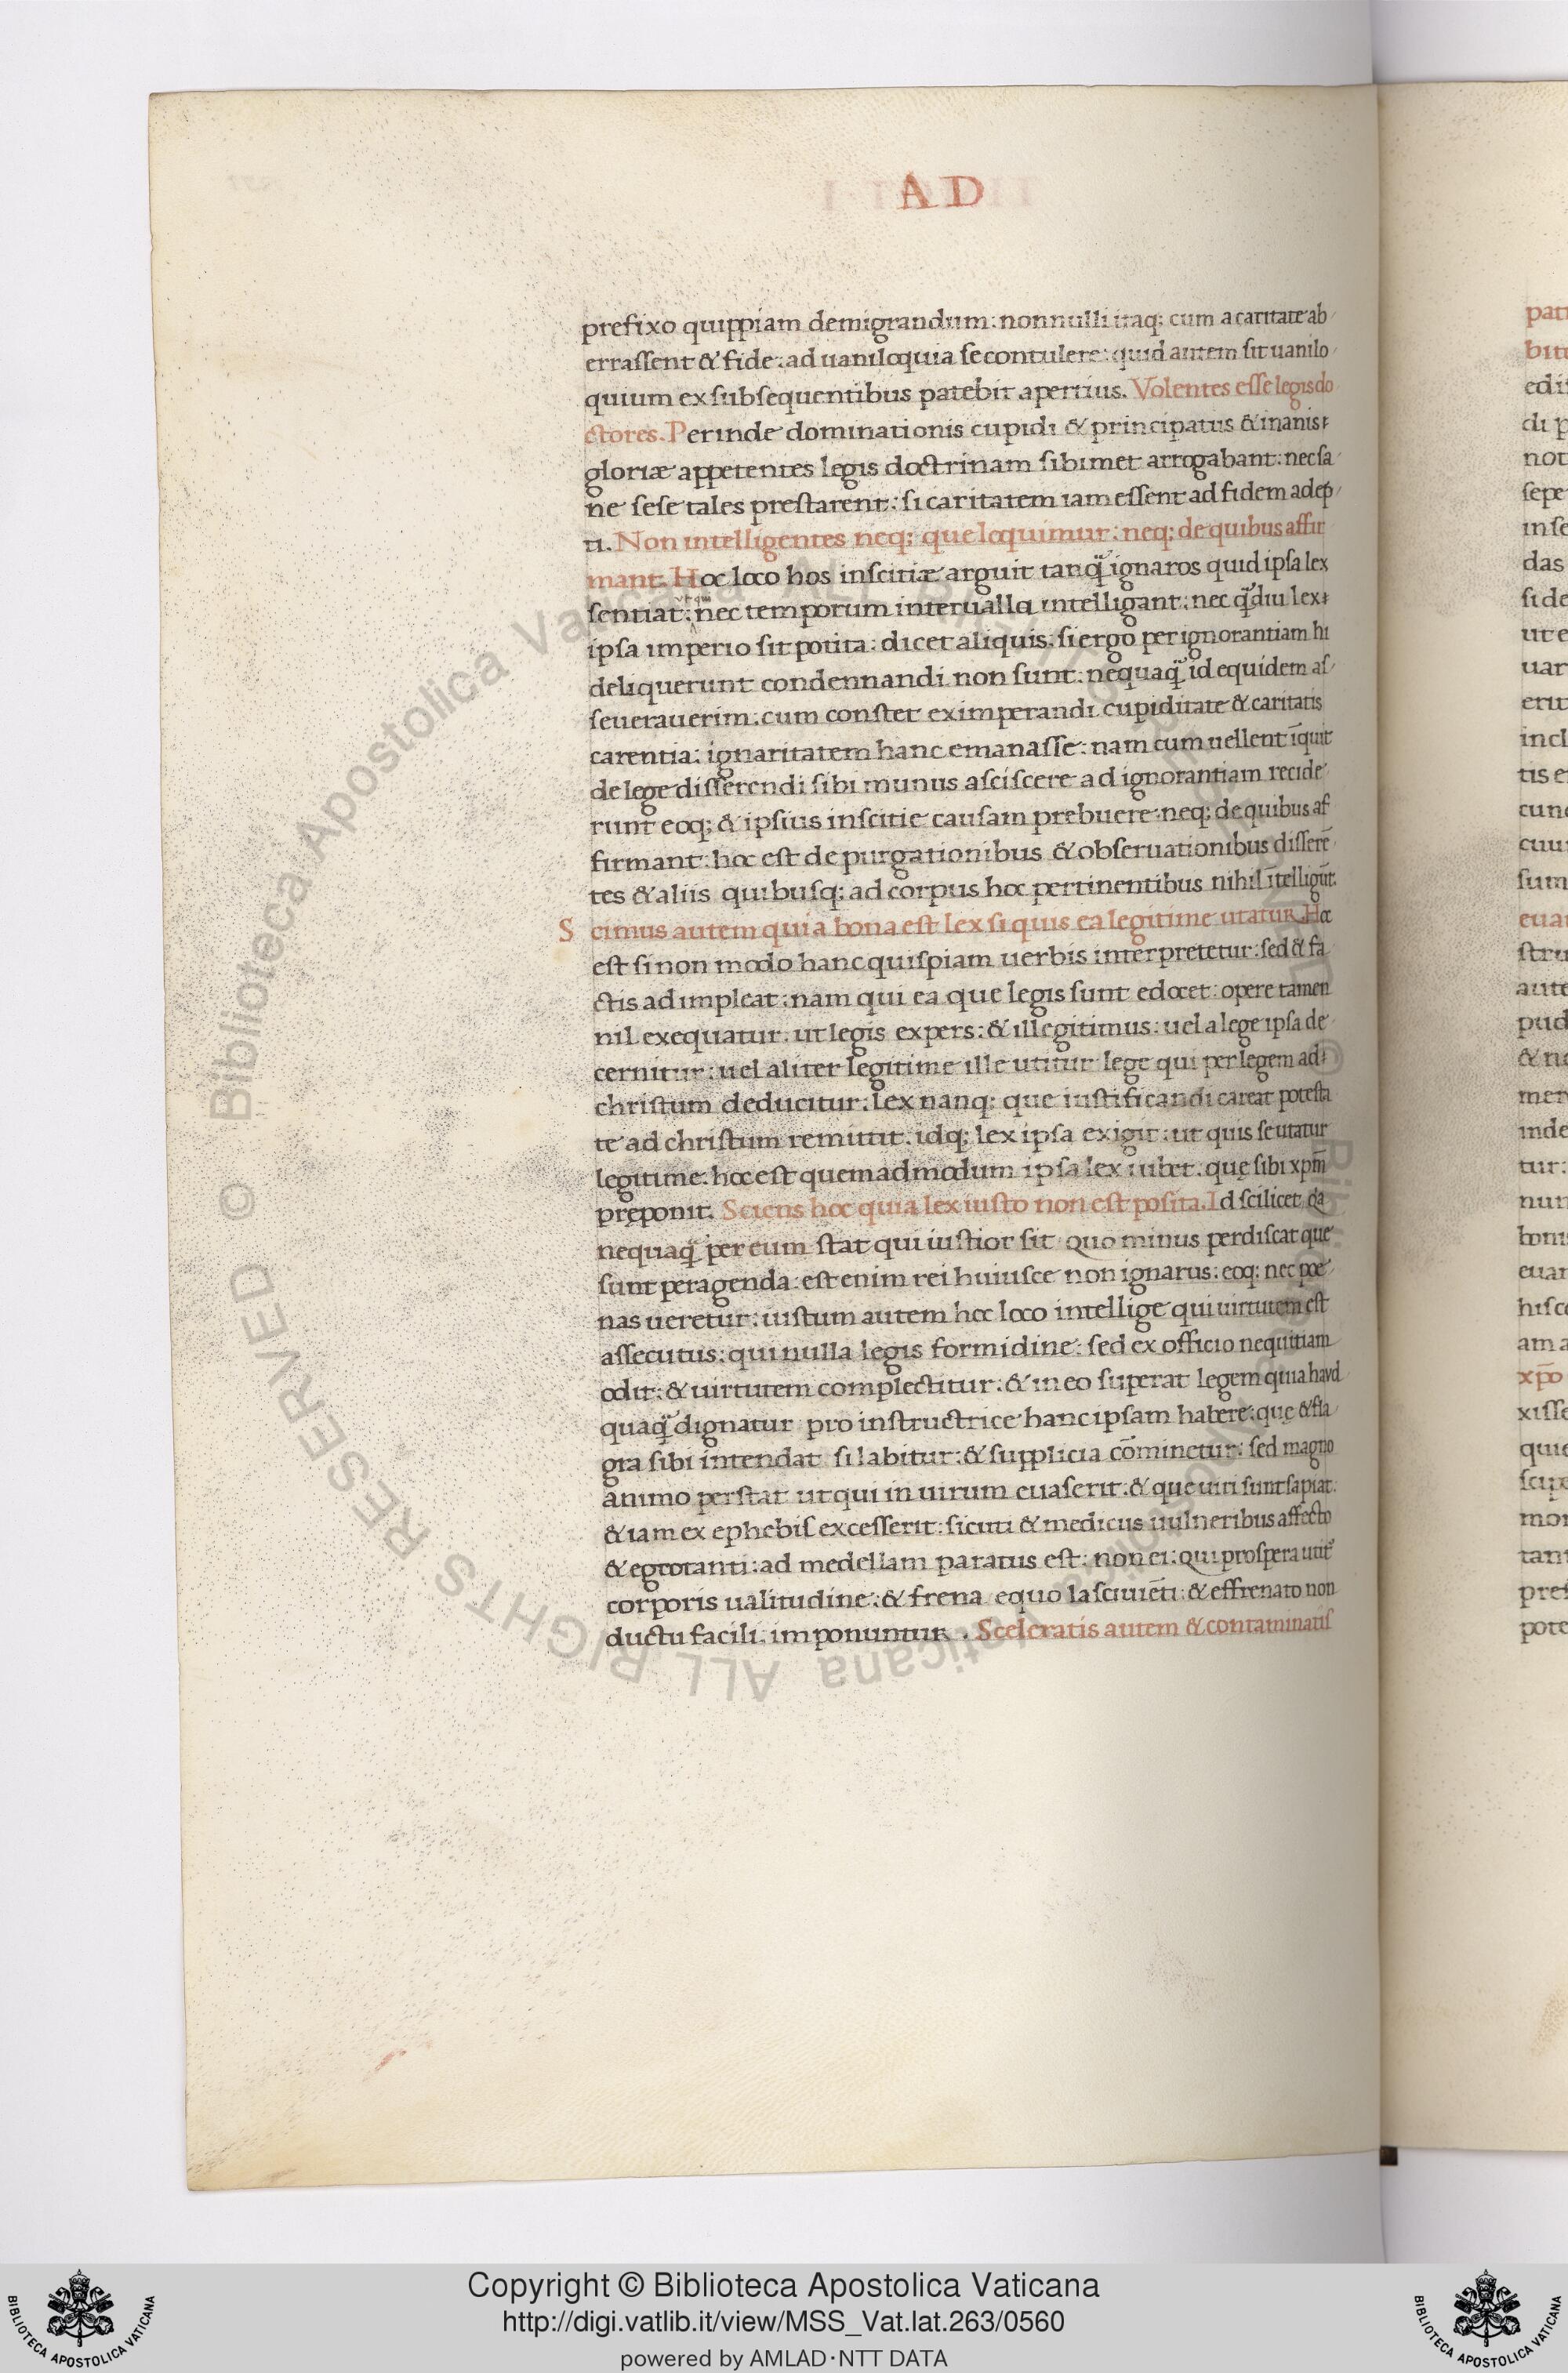 AD
prefixo quippiam demigrandum: nonnulli itaq; cum a caritate ab
errassent & fide: ad uaniloquia se contulere: quid autem sit uanilo
quium ex subsequentibus patebit apertius. Volentes esse legis do
ctores. Perinde dominationis cupidi & principatus & inanis
gloriæ appetentes legis doctrinam sibimet arrogabant: nec sa
ne sese tales prestarent: si caritatem iam essent ad fidem adep
ti. Non intelligentes neq; que loquimur: neq; de quibus affir
mant. Hoc loco hos inscitiæ arguit tanq̃ ignaros quid ipsa lex
sentiat: nec temporum interualla intelligant: nec q̃diu lex
ipsa imperio sit potita: dicet aliquis: si ergo per ignorantiam hi
deliquerunt condennandi non sunt: nequaq̃ id equidem as
seuerauerim: cum constet ex imperandi cupiditate & caritatis
carentia: ignaritatem hanc emanasse: nam cum uellent īquit
de lege disserendi sibi munus asciscere ad ignorantiam recide
runt eoq; & ipsius inscitie causam prebuere: neq; de quibus af
firmant: hoc est de purgationibus & obseruationibus disserē
tes & aliis quibusq; ad corpus hoc pertinentibus nihil ītelligūt.
Scimus autem quia bona est lex si quis ea legitime utatur. Hoc
est si non modo hanc quispiam uerbis interpretetur: sed & fa
ctis adimpleat: nam qui ea que legis sunt edocet: opere tamen
nil exequatur: ut legis expers: & illegitimus: uel a lege ipsa de
cernitur: uel aliter legitime ille utitur lege qui per legem ad
christum deducitur: Lex nanq; que iustificandi careat potesta
te ad christum remittit: idq; lex ipsa exigit: ut quis se utatur
legitime: hoc est quemadmodum ipsa lex iubet: quę sibi xpm̄
pręponit. Sciens hoc quia lex iusto non est posita. Id scilicet da
nequaq̃ per eum stat qui iustior sit quo minus perdiscat que
sunt peragenda: est enim rei huiusce non ignarus: eoq; nec poe
nas ueretur: iustum autem hoc loco intellige qui uirtutem est
assecutus: qui nulla legis formidine: sed ex officio nequitiam
odit: & uirtutem complectitur: & in eo superat legem quia haud
quaq̃ dignatur pro instructrice hanc ipsam habere: quę & fla
gra sibi intendat si labitur: & supplicia cōminetur: sed magno
animo perstat ut qui in uirum euaserit: & que uiri sunt sapiat:
& iam ex ephebis excesserit: sicuti & medicus uulneribus affecto
& egrotanti: ad medellam paratus est: non ei: qui prospera utit̃
corporis ualitudine: & frena equo lasciuiēti: & effrenato non
ductu facili: imponuntur. Sceleratis autem & contaminatis
Copyright © Biblioteca Apostolica Vaticana
http://digi.vatlib.it/view/MSS_Vat.lat.263/0560
powered by AMLAD·NTT DATA
BIBLIOTECA APOSTOLICA VATICANA
BIBLIOTECA APOSTOLICA VATICANA